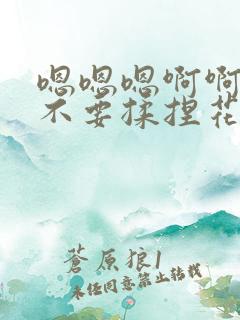 嗯嗯嗯啊啊
不要揉捏花
蒼原狼1
未经同意禁止转载